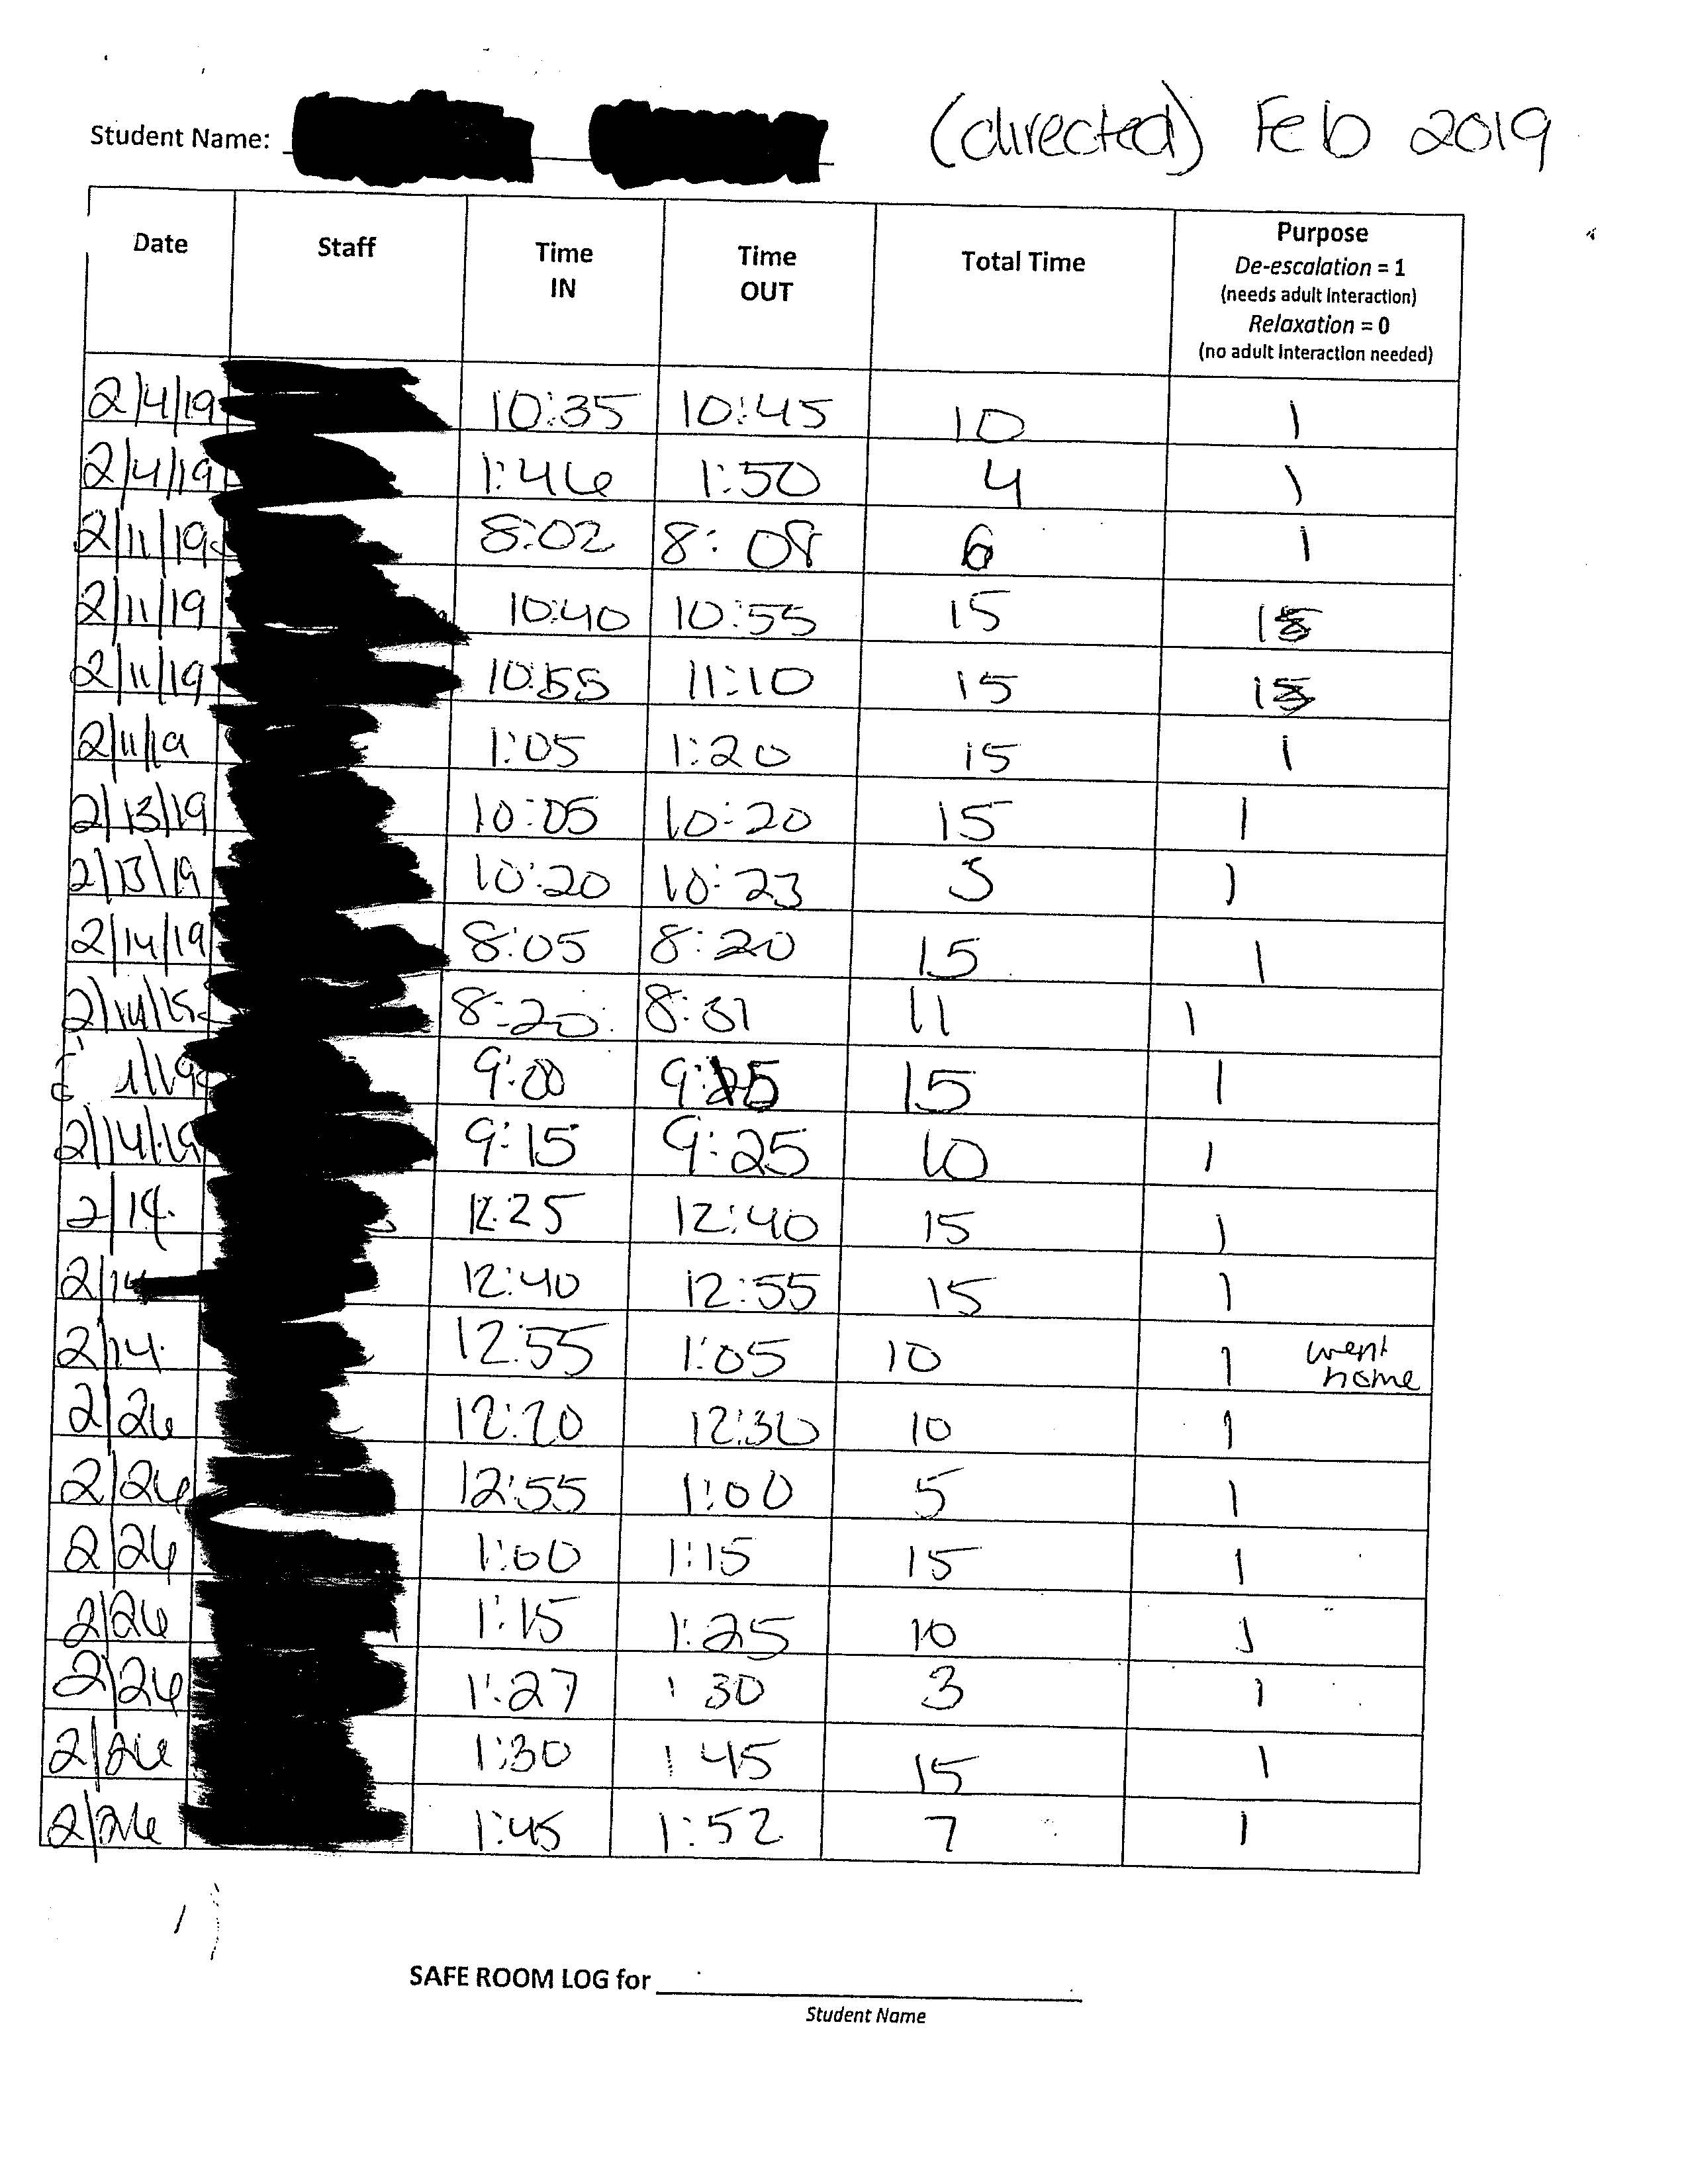 Student Name: (directed) Feb 2019
Date Staff Time IN Time OUT Total Time Purpose
De-escalation = 1
(needs adult interaction)
Relaxation = 0
(no adult interaction needed)
2/4/19 10:35 10:45 10 1
2/4/19 1:46 1:50 4 1
2/11/19 8:02 8:08 6 1
2/11/19 10:40 10:55 15 1
2/11/19 10:55 11:10 15 1
2/11/19 1:05 1:20 15 1
2/13/19 10:05 10:20 15 1
2/13/19 10:20 10:23 3 1
2/14/19 8:05 8:20 15 1
8:20 8:31 11 1
9:00 9:15 15 1
2/14/19 9:15 9:25 10 1
2/14 12:25 12:40 15 1
2/14 12:40 12:55 15 1
2/14 12:55 1:05 10 1 went home
2/26 12:20 12:30 10 1
2/26 12:55 1:00 5 1
2/26 1:00 1:15 15 1
2/26 1:15 1:25 10 1
2/26 1:27 1 30 3 1
2/26 1:30 1 45 15 1
2/26 1:45 1:52 7 1
SAFE ROOM LOG for
Student Name